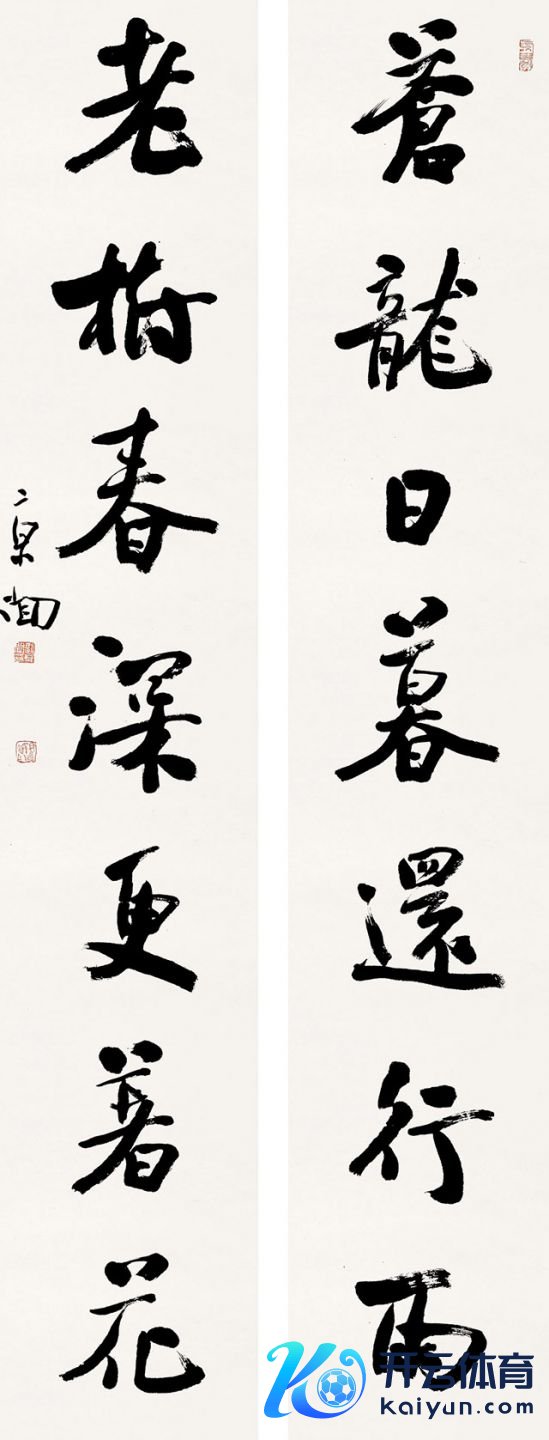 蒼龍日暮還行雨
老樹春深更著花
开云体育
kaiyun.com